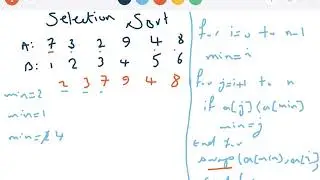 Selection Sort
A: 7 3 2 9 4 8
B: 1 2 3 4 5 6
2 3 7 9 4 8
min=2
min=1
min=4
for i=0 to n-1
min=i
for j=i+1 to n
if a[j]<a[min]
min=j
End for
swap(a[min],a[i]